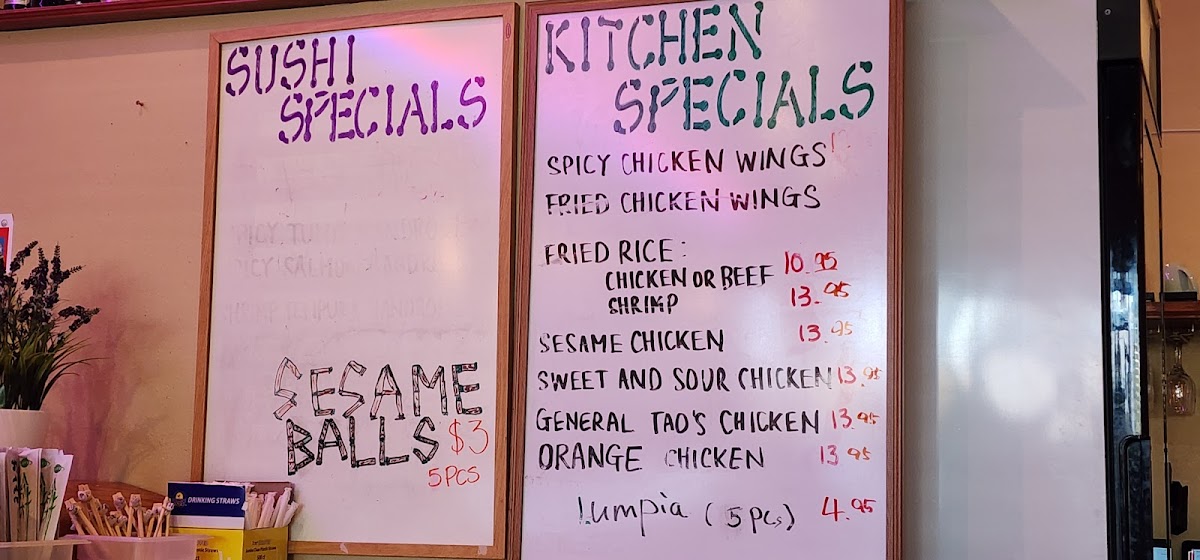 SUSHI
SPECIALS
SESAME
BALLS $3
5 PCS
KITCHEN
SPECIALS
SPICY CHICKEN WINGS
FRIED CHICKEN WINGS
FRIED RICE:
CHICKEN OR BEEF 10.95
SHRIMP 13.95
SESAME CHICKEN 13.95
SWEET AND SOUR CHICKEN 13.95
GENERAL TAO'S CHICKEN 13.95
ORANGE CHICKEN 13.95
Lumpia (5 pcs) 4.95
DRINKING STRAWS